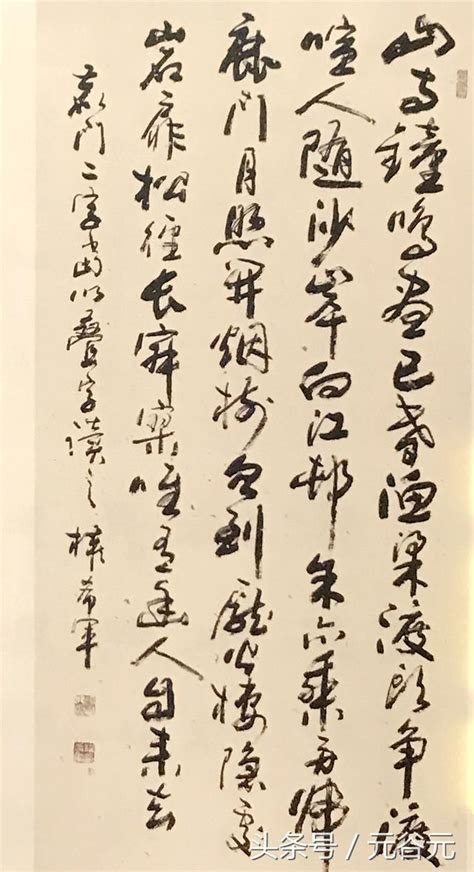 山寺鐘鳴晝已昏漁梁渡頭争渡
喧人随沙岸向江邨余亦乘舟歸
鹿门月照開烟樹忽到龐公棲隱處
岩扉松徑長寂寥唯有幽人自来去
鹿门二字當以疊字讀之 權希軍
头条号 / 元谷元